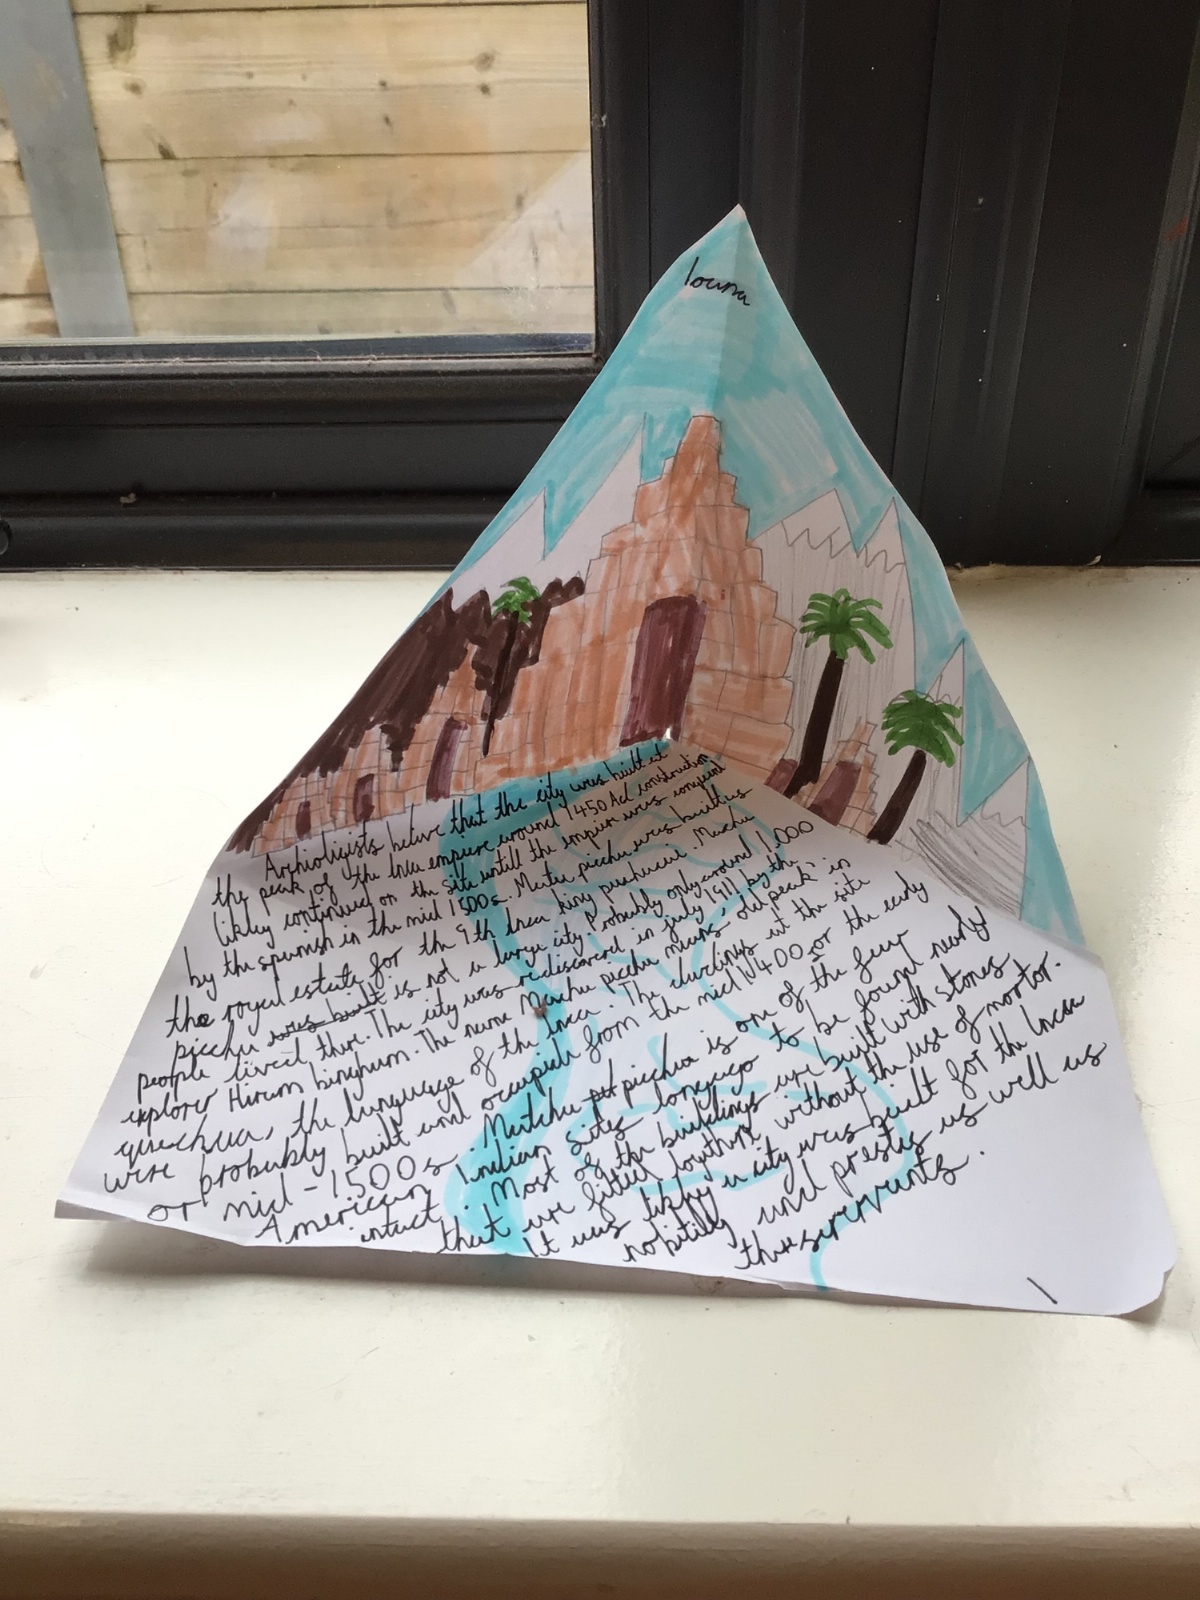 louna
Arhioligists belive that the city was built at
the peak of the Inca empiere around 1450 Ad construction
likley continued on the site untill the empire was conquerd
by the spanish in the mid 1500s. Matchu picchu was built as
the royal estate for the 9th Inca king pachucuti. Machu
picchu was built is not a large city. Probably only around 1,000
people lived there. The city was rediscoverd in july 1911 by the
explorer Hiram bingham. The name Machu picchu means 'old peak' in
quechua, the language of the Inca. The dwelings at the site
were probably built and occupide from the mid 1400s or the early
or mid - 1500s. Matchu picchu is one of the few
American Indian sites to be found nearly
intact. Most of the buildings are built with stones
that are fitted togther without the use of mortor.
It was likley a city was built for the Inca
nobitley and prestes as well as
there servants.